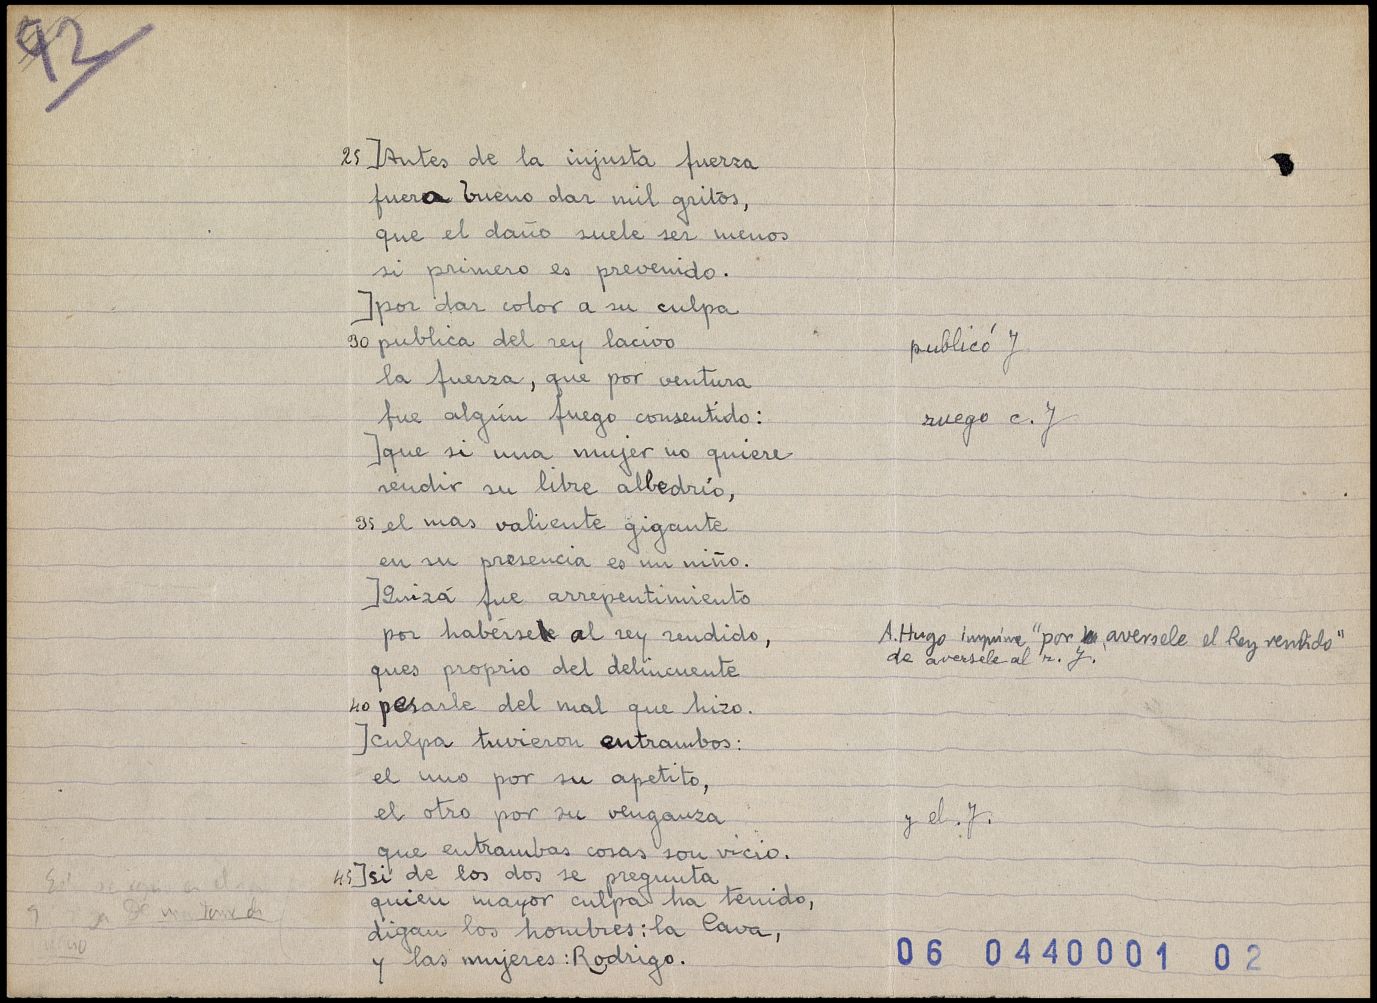 92
25 ]Antes de la injusta fuerza
fuera bueno dar mil gritos,
que el daño suele ser menos
si primero es prevenido.
]por dar color a su culpa
30 publica del rey lacivo
publicó J
la fuerza, que por ventura
fue algún fuego consentido:
ruego c. J
]que si una mujer no quiere
rendir su libre albedrío,
35 el mas valiente gigante
en su presencia es un niño.
]Quizá fue arrepentimiento
por habérsele al rey rendido,
A. Hugo imprime "por aversele el Rey rendido"
ques proprio del delincuente
de aversele al r. J.
40 pesarle del mal que hizo.
]culpa tuvieron entrambos:
el uno por su apetito,
el otro por su venganza
y el. J.
que entrambas cosas son vicio.
45 ]si de los dos se pregunta
quien mayor culpa ha tenido,
digan los hombres: la Cava,
y las mujeres: Rodrigo.
06 0440001 02